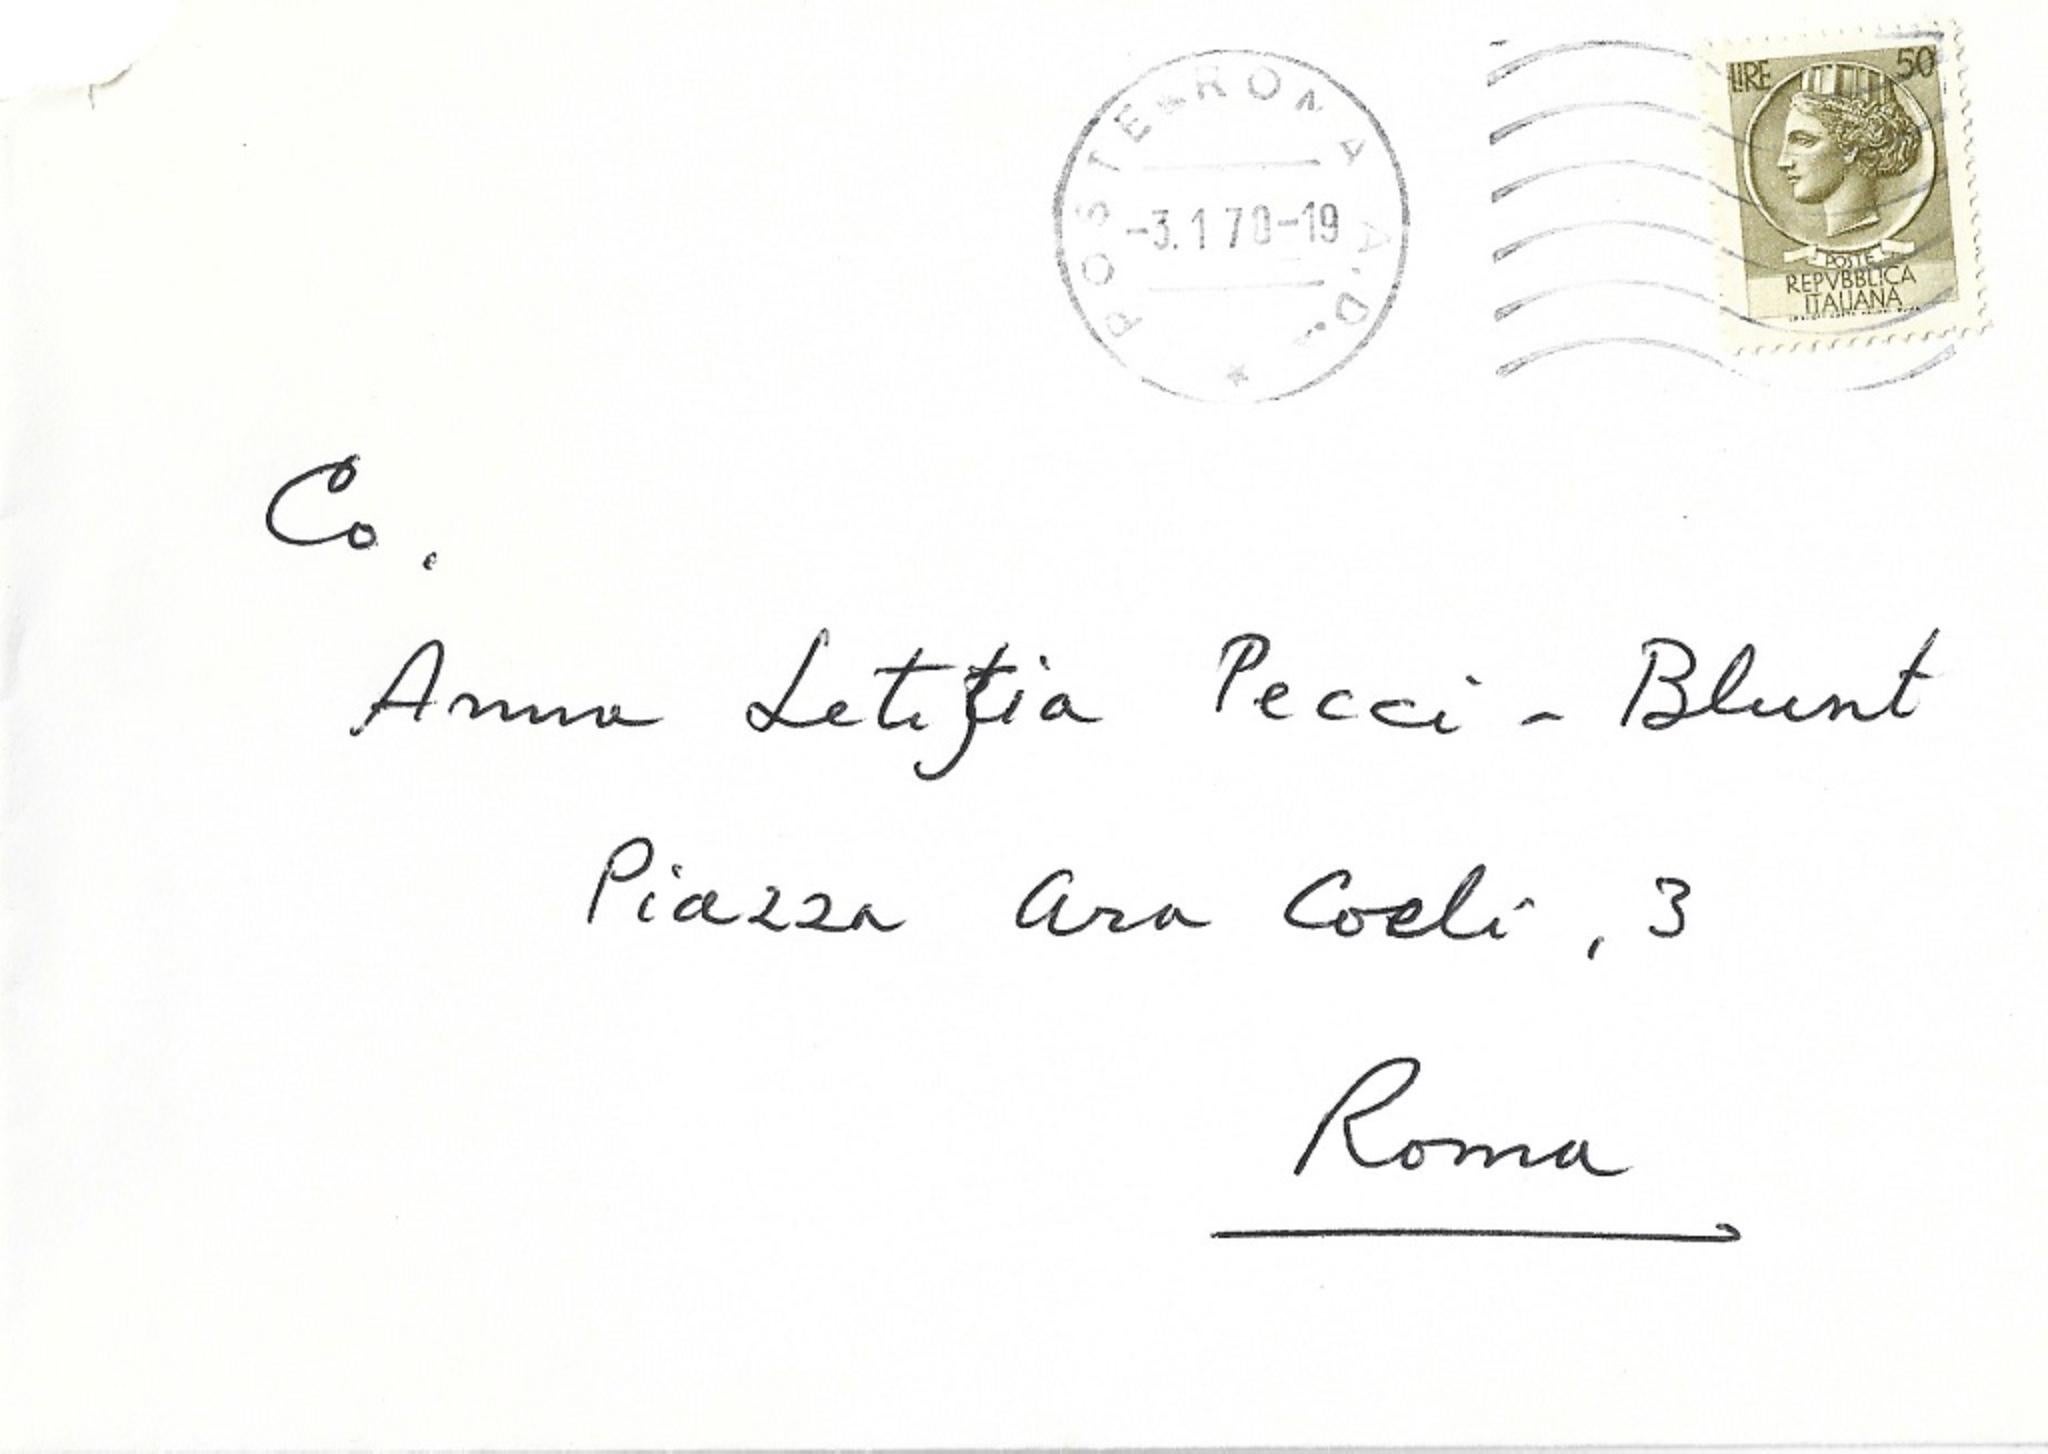 POSTE ROMA A.D.
-3.1 70-19
LIRE 50
POSTE
REPVBBLICA
ITALIANA
Co.
Anna Letizia Pecci - Blunt
Piazza Ara Coeli, 3
Roma